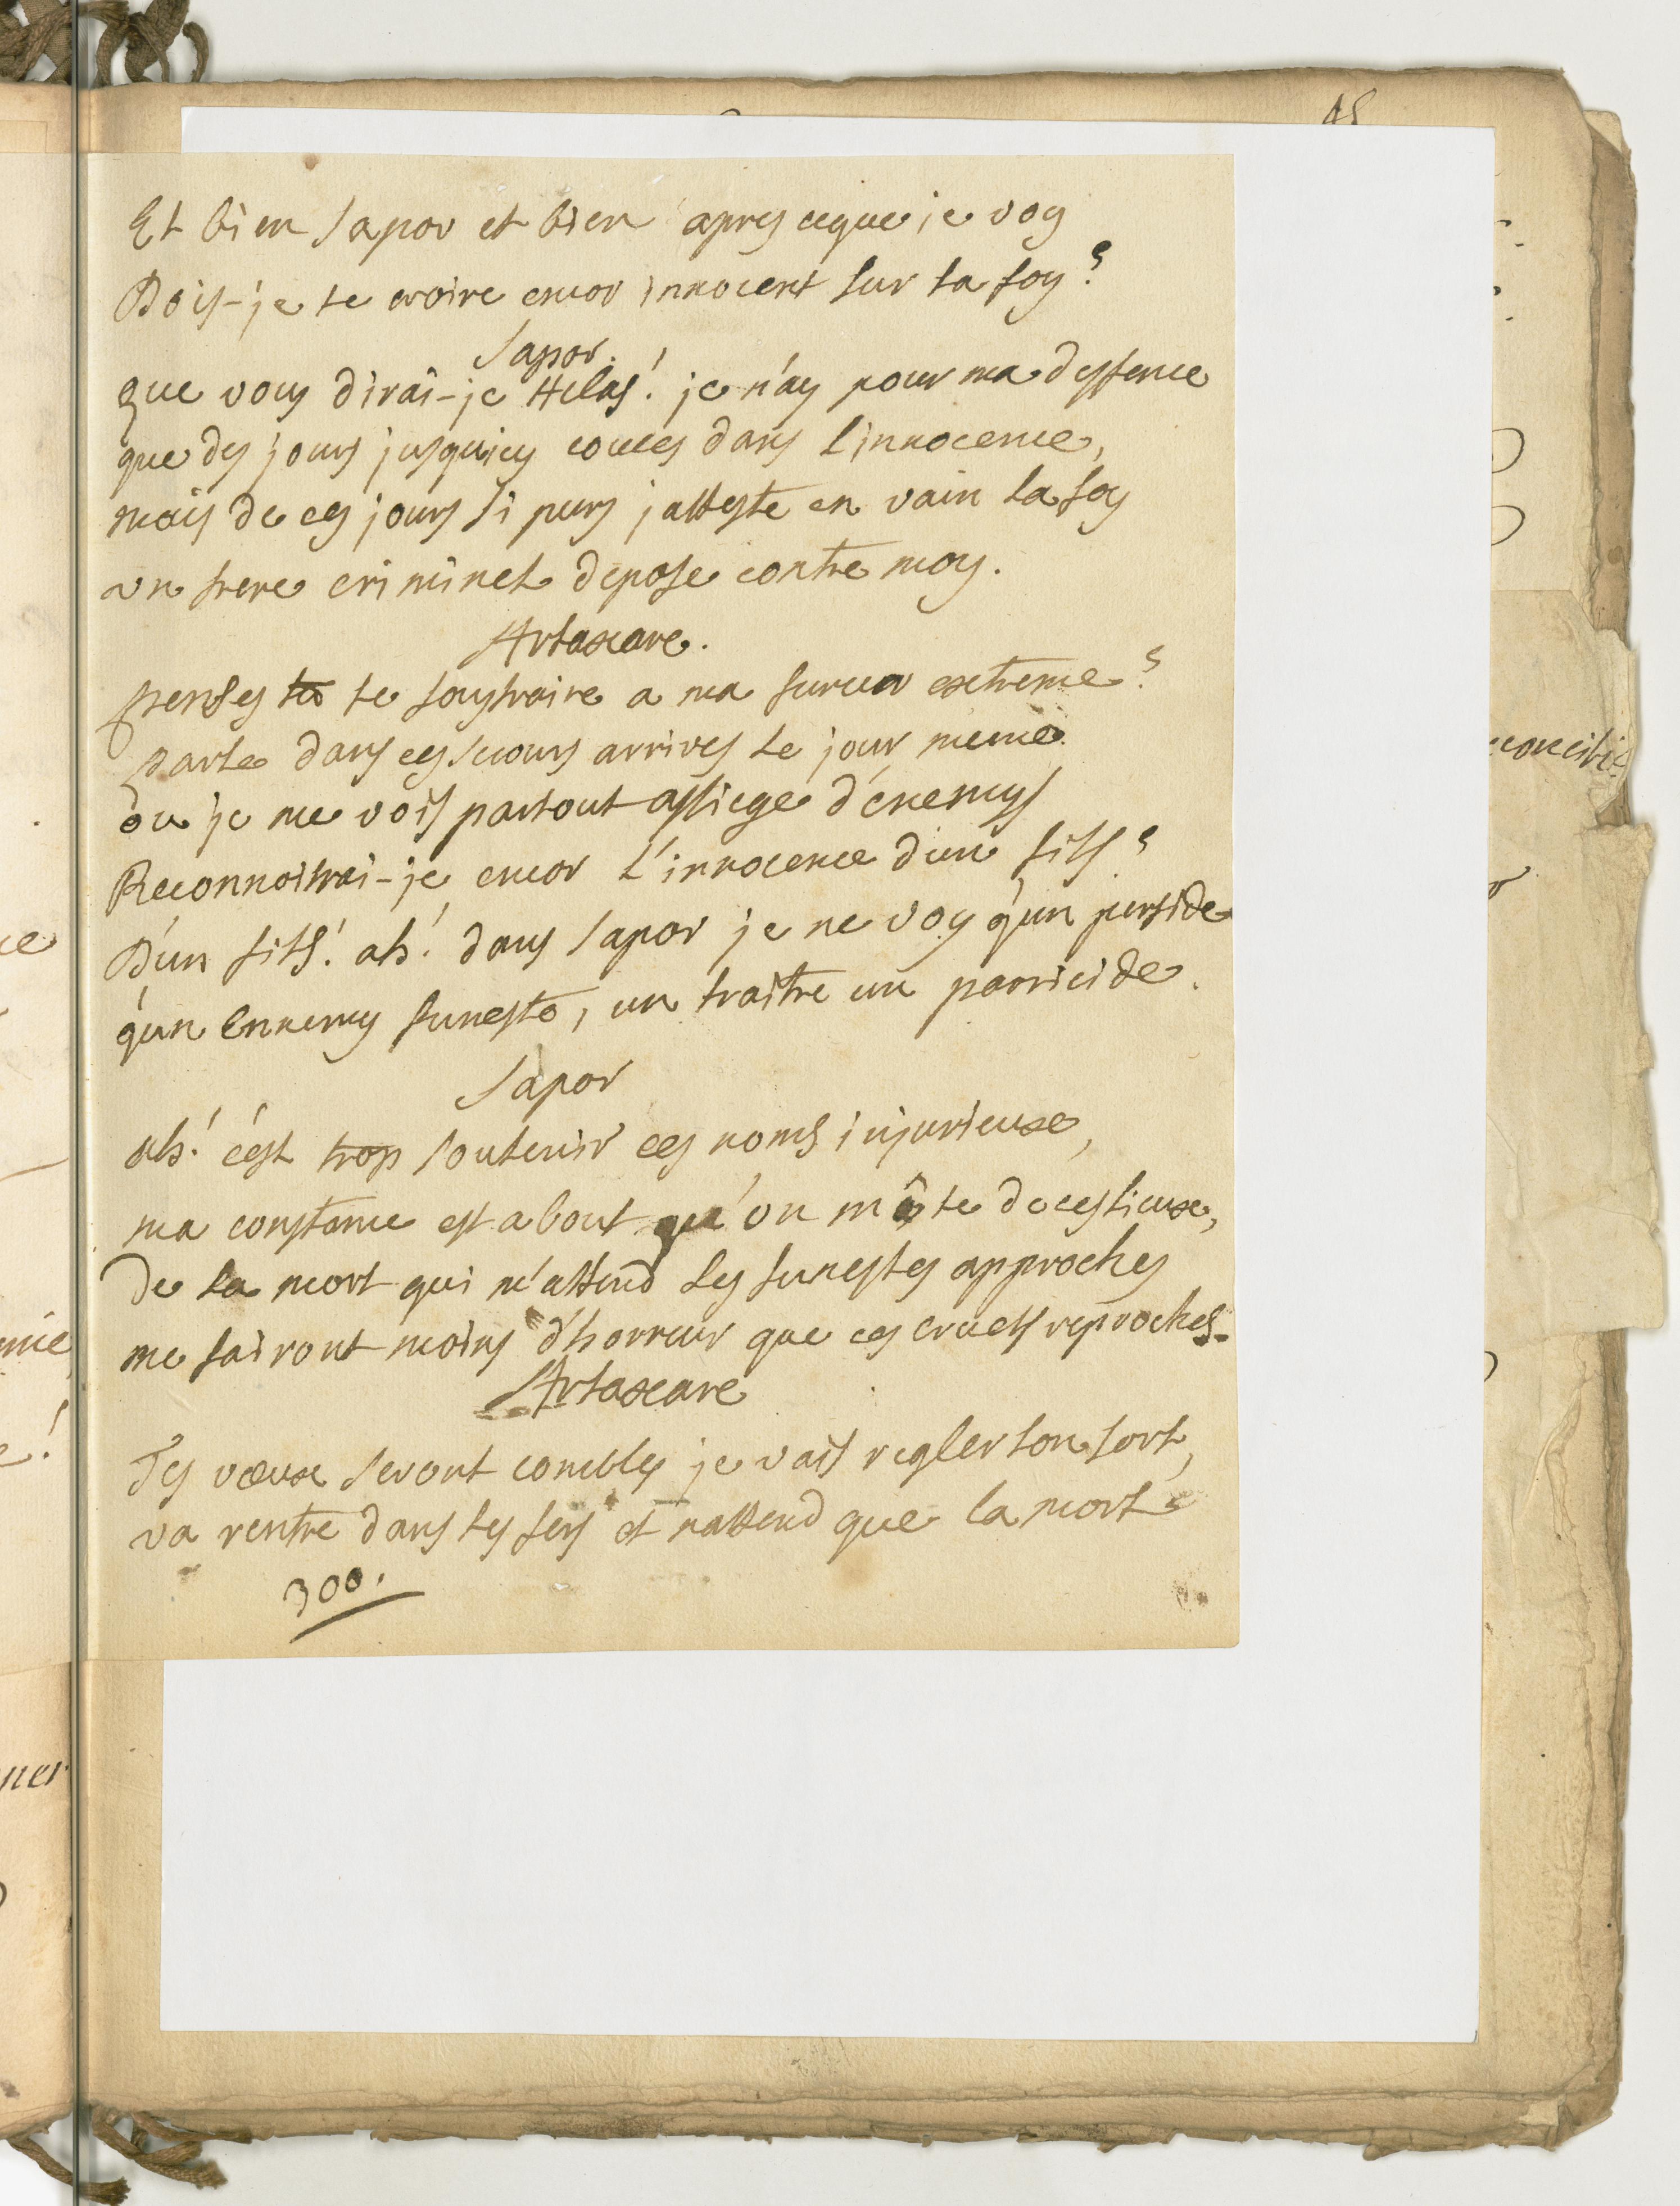 45
Et bien Sapor et bien apres ceque je voy
Dois-je te croire encor innocent sur ta foy?
Sapor.
que vous dirai-je Helas! je n'ay pour ma deffence
que des jours jusquicy coulés dans l'innocence,
mais de ces jours si purs j'atteste en vain la foy
un frere criminel depose contre moy.
Artaxare.
penses tu te soustraire a ma fureur extreme?
parle dans ces secours arrivés le jour meme
ou je me vois partout assiege d'enemys
Reconnoitrai-je encor l'innocence d'un fils?
D'un fils! ah! dans Sapor je ne voy q'un perfide
q'un Ennemy funeste, un traître un parricide.
Sapor
ah! c'est trop soutenir ces noms injurieux,
ma constance est a bout qu'on m'ôte de ces lieux,
De la mort qui m'attend les funestes approches
me fairont moins d'horreur que ces cruels reproches.
Artaxare
Tes voeux seront comblés je vais regler ton sort,
va rentre dans tes fers et n'attend que la mort
300.